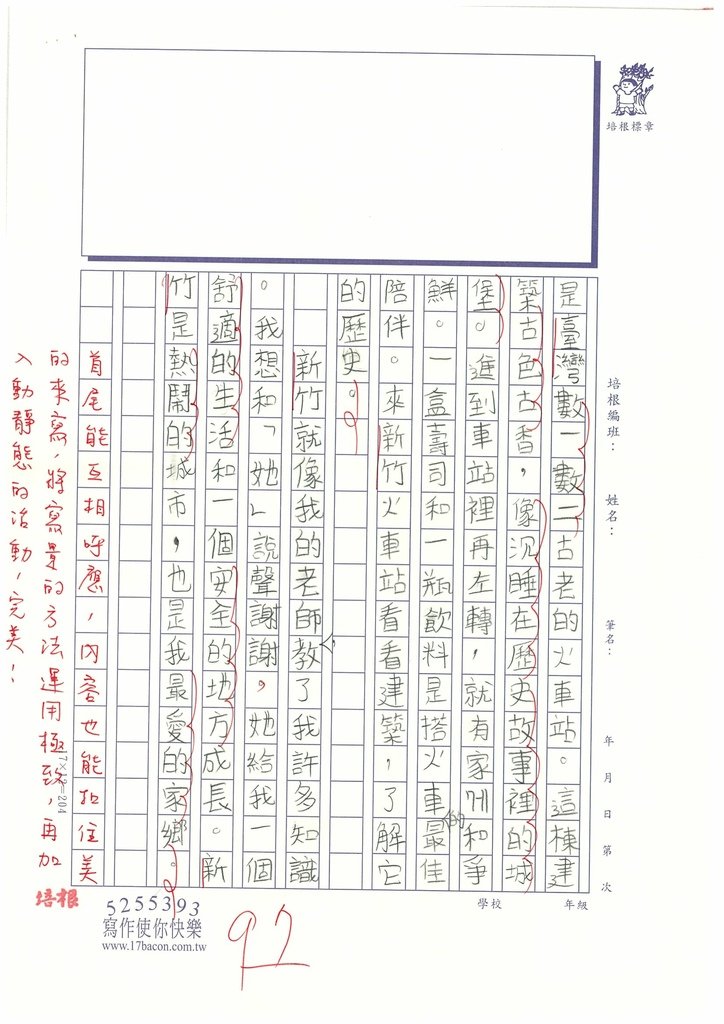 培根標章
培根編班：
姓名：
筆名：
年 月 日 第 次
學校
年級
是臺灣數一數二古老的火車站。這棟建
築古色古香，像沉睡在歷史故事裡的城
堡。進到車站裡再左轉，就有家洲和爭
鮮。一盒壽司和一瓶飲料是搭火車最佳
的
陪伴。來新竹火車站看看建築，了解它
的歷史。
新竹就像我的老師教了我許多知識
，
。我想和「她」說聲謝謝，她給我一個
舒適的生活和一個安全的地方成長。新
竹是熱鬧的城市，也是我最愛的家鄉。
首尾能互相呼應，內容也能扣住美
的來寫，將寫景的方法運用極致，再加
入動靜態的活動，完美！
17×12=204
培根
5255393
寫作使你快樂
www.17bacon.com.tw
92